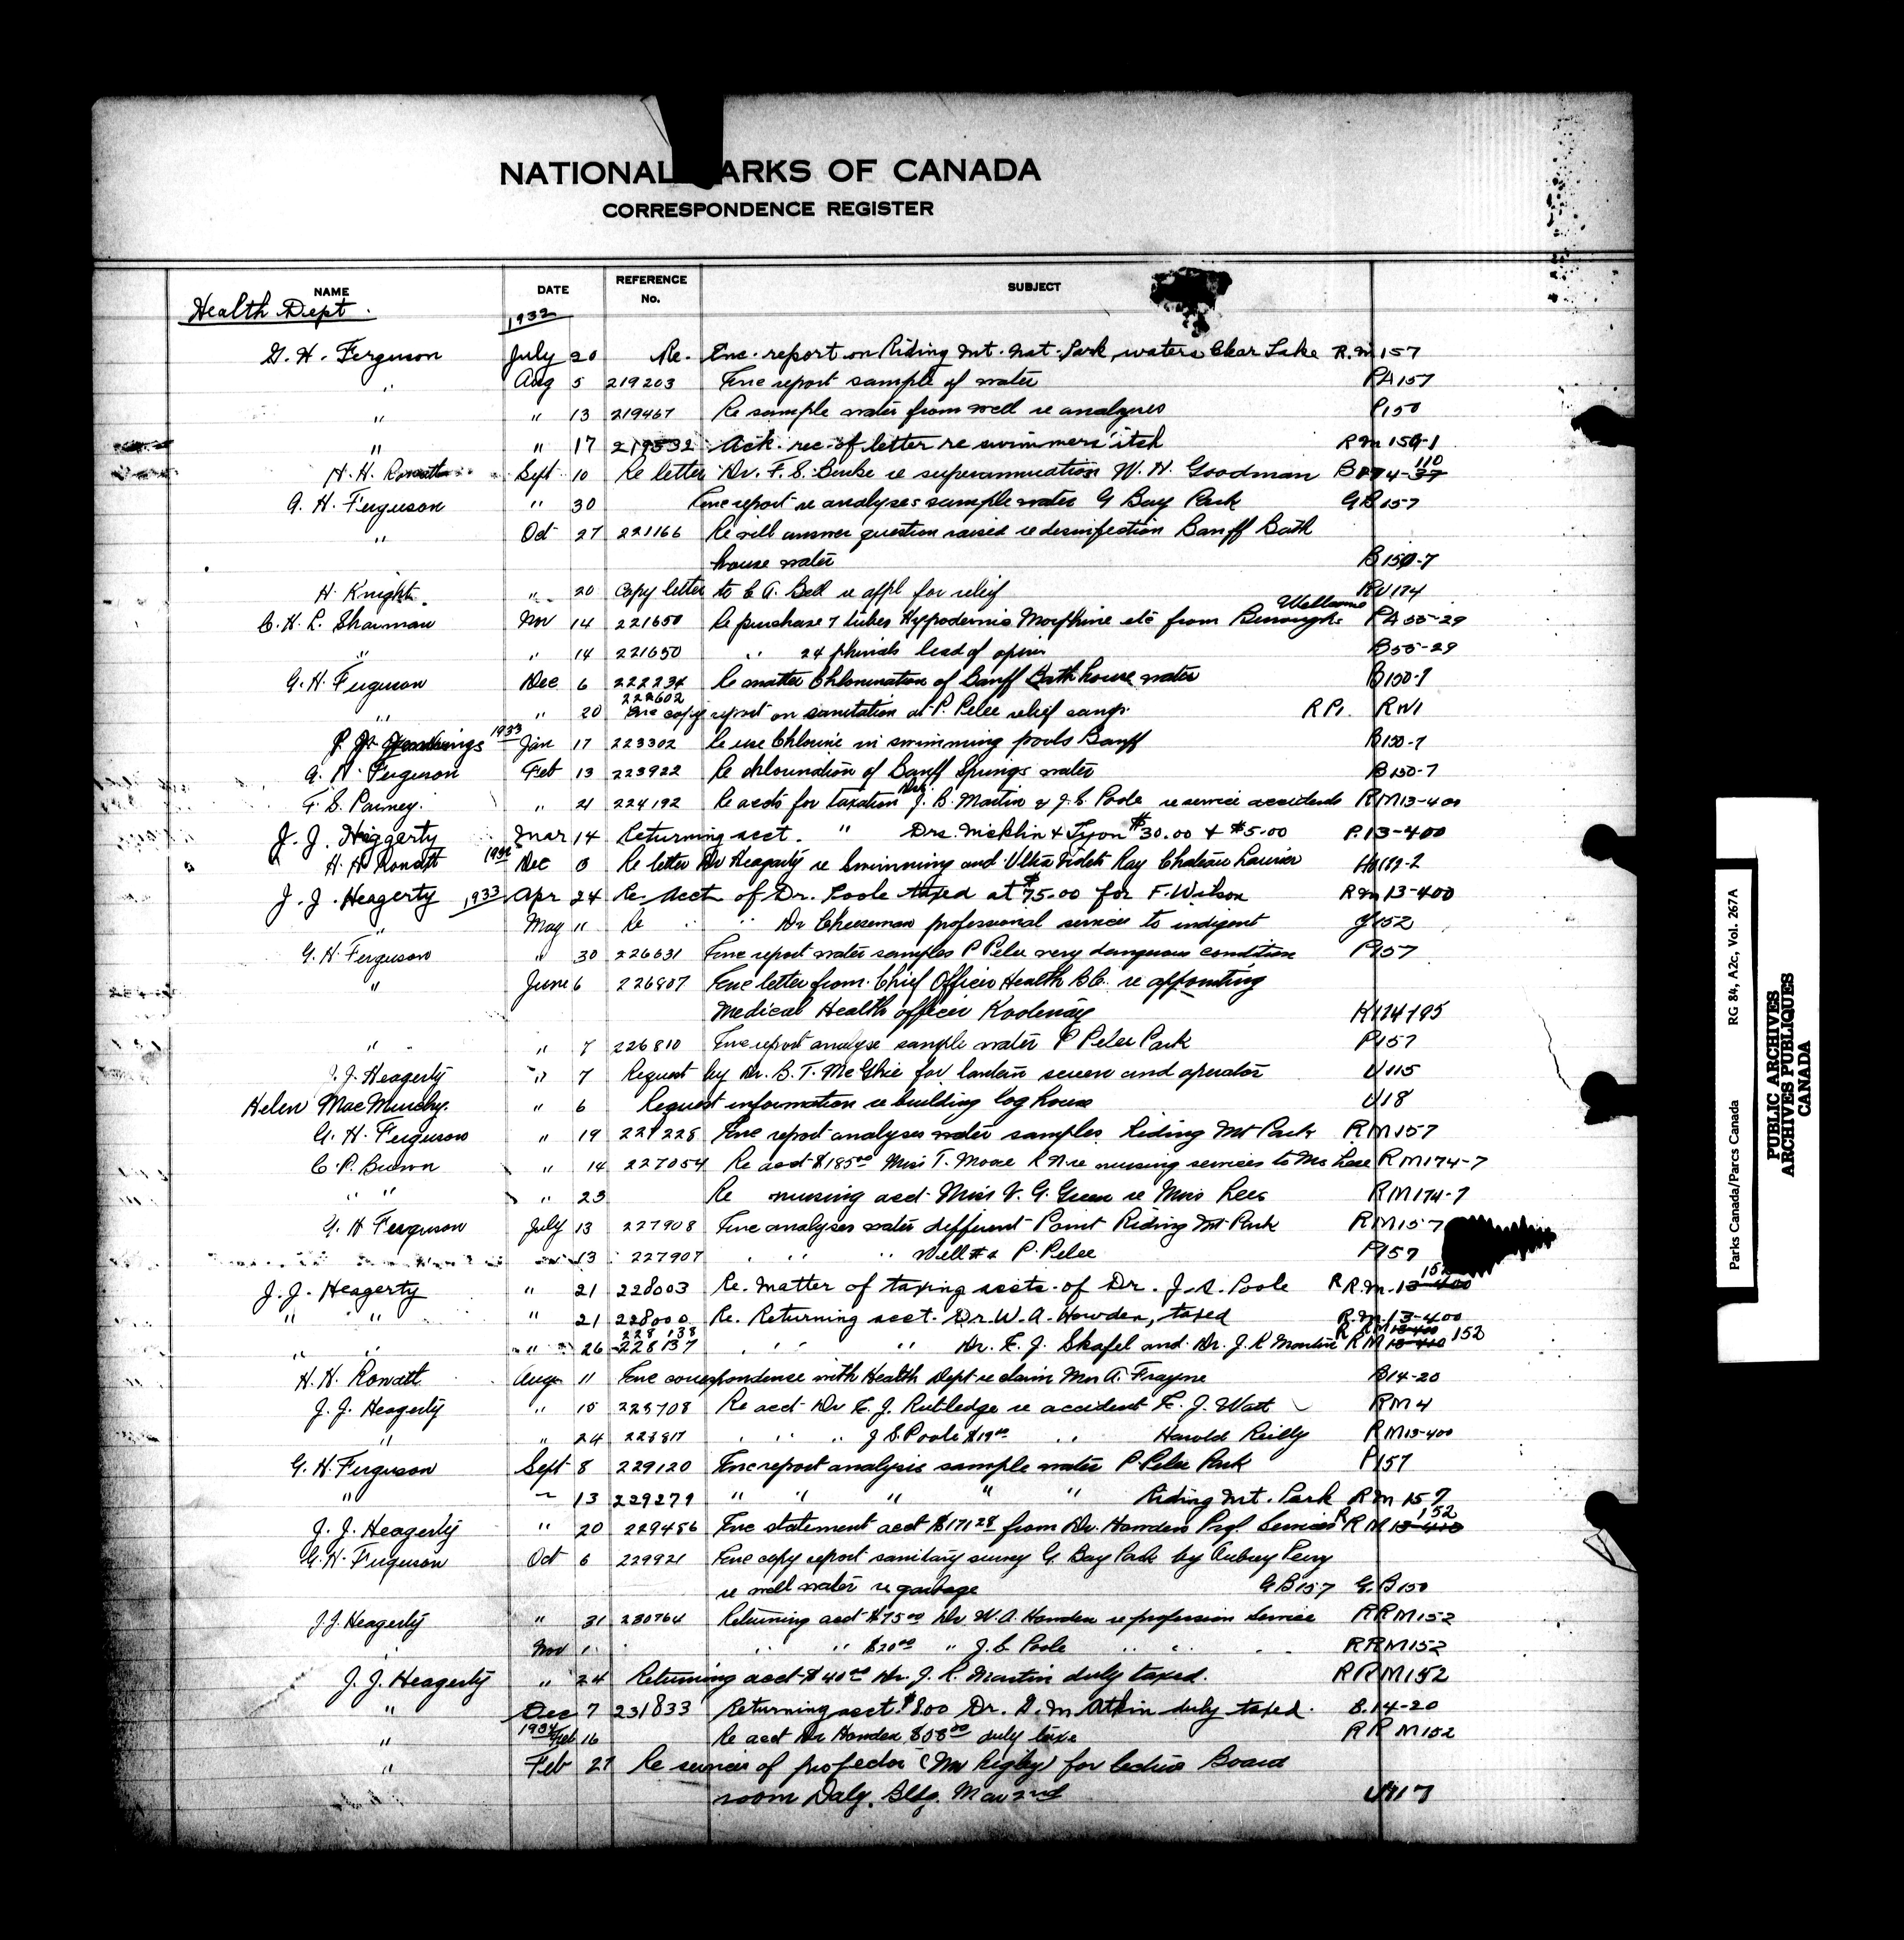 NATIONAL ARKS OF CANADA
CORRESPONDENCE REGISTER
NAME DATE REFERENCE No. SUBJECT
Health Dept. 1932
G. H. Ferguson July 20 Re. Enc. report on Riding Mt. Nat. Park, waters Clear Lake R.M 157
" Aug 5 219203 Enc report sample of water PA157
" " 13 219467 Re sample water from well re analyses P150
" " 17 219532 Ack. rec. of letter re swimmers' itch R.M 159-1
H. H. Rowatt Sept 10 Re letter Dr. F. S. Burke re superannuation W. H. Goodman 110
G. H. Ferguson " 30 Enc report re analyses sample water G Bay Park GB157
" Oct 27 221166 Re will answer question raised re desinfection Banff Bath
house water B150-7
H. Knight " 20 Copy letter to C A. Bell re appl for relief RU174
C. H. L. Sharman Nov 14 221650 Re purchase 7 tubes Hypodermic Morphine etc from Burroughs Wellcome PA 55-29
" " 14 221650 " 24 phials lead of opium B55-29
G. H. Ferguson Dec 6 222234 Re matter Chlorination of Banff Bath house water B150-7
" " 20 222602 Enc copy report on sanitation at P. Pelee relief camp. R P1. RW1
1933 Jan 17 223302 Re use Chlorine in swimming pools Banff B150-7
G. H. Ferguson Feb 13 223922 Re chlorination of Banff Springs water B150-7
F. S. Parney. " 21 224192 Re accts for taxation Drs. J. R. Martin & J. S. Poole re service accidents RM13-400
J. J. Heggerty Mar 14 Returning acct. " Drs. Nicklin & Tyon $30.00 & $5.00 P.13-400
H. H. Rowatt 1932 Dec 8 Re letter Dr Heagerty re Swimming and Ultra Violet Ray Chateau Laurier
J. J. Heagerty 1933 Apr 24 Re. Acct of Dr. Poole taxed at $75.00 for F. Wilson R.M 13-400
" May 11 Re " " Dr Cheeseman professional services to indigent J152
G. H. Ferguson " 30 226631 Enc report water samples P Pelee very dangerous condition P157
" June 6 226807 Enc letter from Chief Officer Health B.C. re appointing
Medical Health officer Kootenay
" " 7 226810 Enc report analyse sample water P Pelee Park P157
J. J. Heagerty " 7 Request by Dr. B. T. McGhie for lantern screen and operator U115
Helen MacMurchy. " 6 Request information re building log house U18
G. H. Ferguson " 19 227228 Enc report analyses water samples Riding Mt Park RM157
C. P. Brown " 14 227054 Re acct $185.00 Miss T. Moore R N re nursing services to Mrs Lees RM174-7
" " " 23 Re nursing acct. Miss V. G. Green re Miss Lees RM174-7
G. H Ferguson July 13 227908 Enc analyses water different Point Riding Mt Park RM157
" 13 227907 " " " Well #2 P. Pelee P157
J. J. Heagerty " 21 228003 Re. Matter of taxing accts. of Dr. J. S. Poole R R.M. 13-400 152
" " " " 21 228000 Re. Returning acct. Dr. W. A. Howden, taxed R.M. 13-400
" " " 26 228138 228137 " " Dr. E. J. Skafel and Dr. J. R Martin R RM 13-400 152
H. H. Rowatt Aug 11 Enc correspondence with Health Dept re claim Mrs A. Frayne B14-20
J. J. Heagerty " 15 228708 Re acct Dr E. J. Rutledge re accident E. J. Watt RM4
" " 24 228817 " " " J S. Poole $19.00 " " Harold Reilly RM13-400
G. H. Ferguson Sept 8 229120 Enc report analysis sample water P. Pelee Park P157
" " 13 229279 " " " " " Riding Mt. Park R.M 157
J. J. Heagerty " 20 229486 Enc statement acct $171.28 from Dr. Howden Prof. Services R R M 13-400 152
G. H. Ferguson Oct 6 229921 Enc copy report sanitary survey G. Bay Park by Aubrey Perry
re well water re garbage GB157 G.B150
J.J. Heagerty " 31 230764 Returning acct $75.00 Dr W. A. Howden re profession Service RRM152
" Nov 1 " " $20.00 " J. S. Poole " " RRM152
J. J. Heagerty " 24 Returning acct $40.00 Dr. J. R. Martin duly taxed. RRM152
" Dec 7 231833 Returning acct. $8.00 Dr. G. M Atkin duly taxed. B.14-20
" 1934 Feb 16 Re acct Dr Howden duly taxe RRM152
" Feb 27 Re services of projector (Mr Rigby) for lecture Board
room Daly. Bldg. Mar 2nd U117
RG 84, A2c, Vol. 267A
Parks Canada/Parcs Canada
PUBLIC ARCHIVES
ARCHIVES PUBLIQUES
CANADA